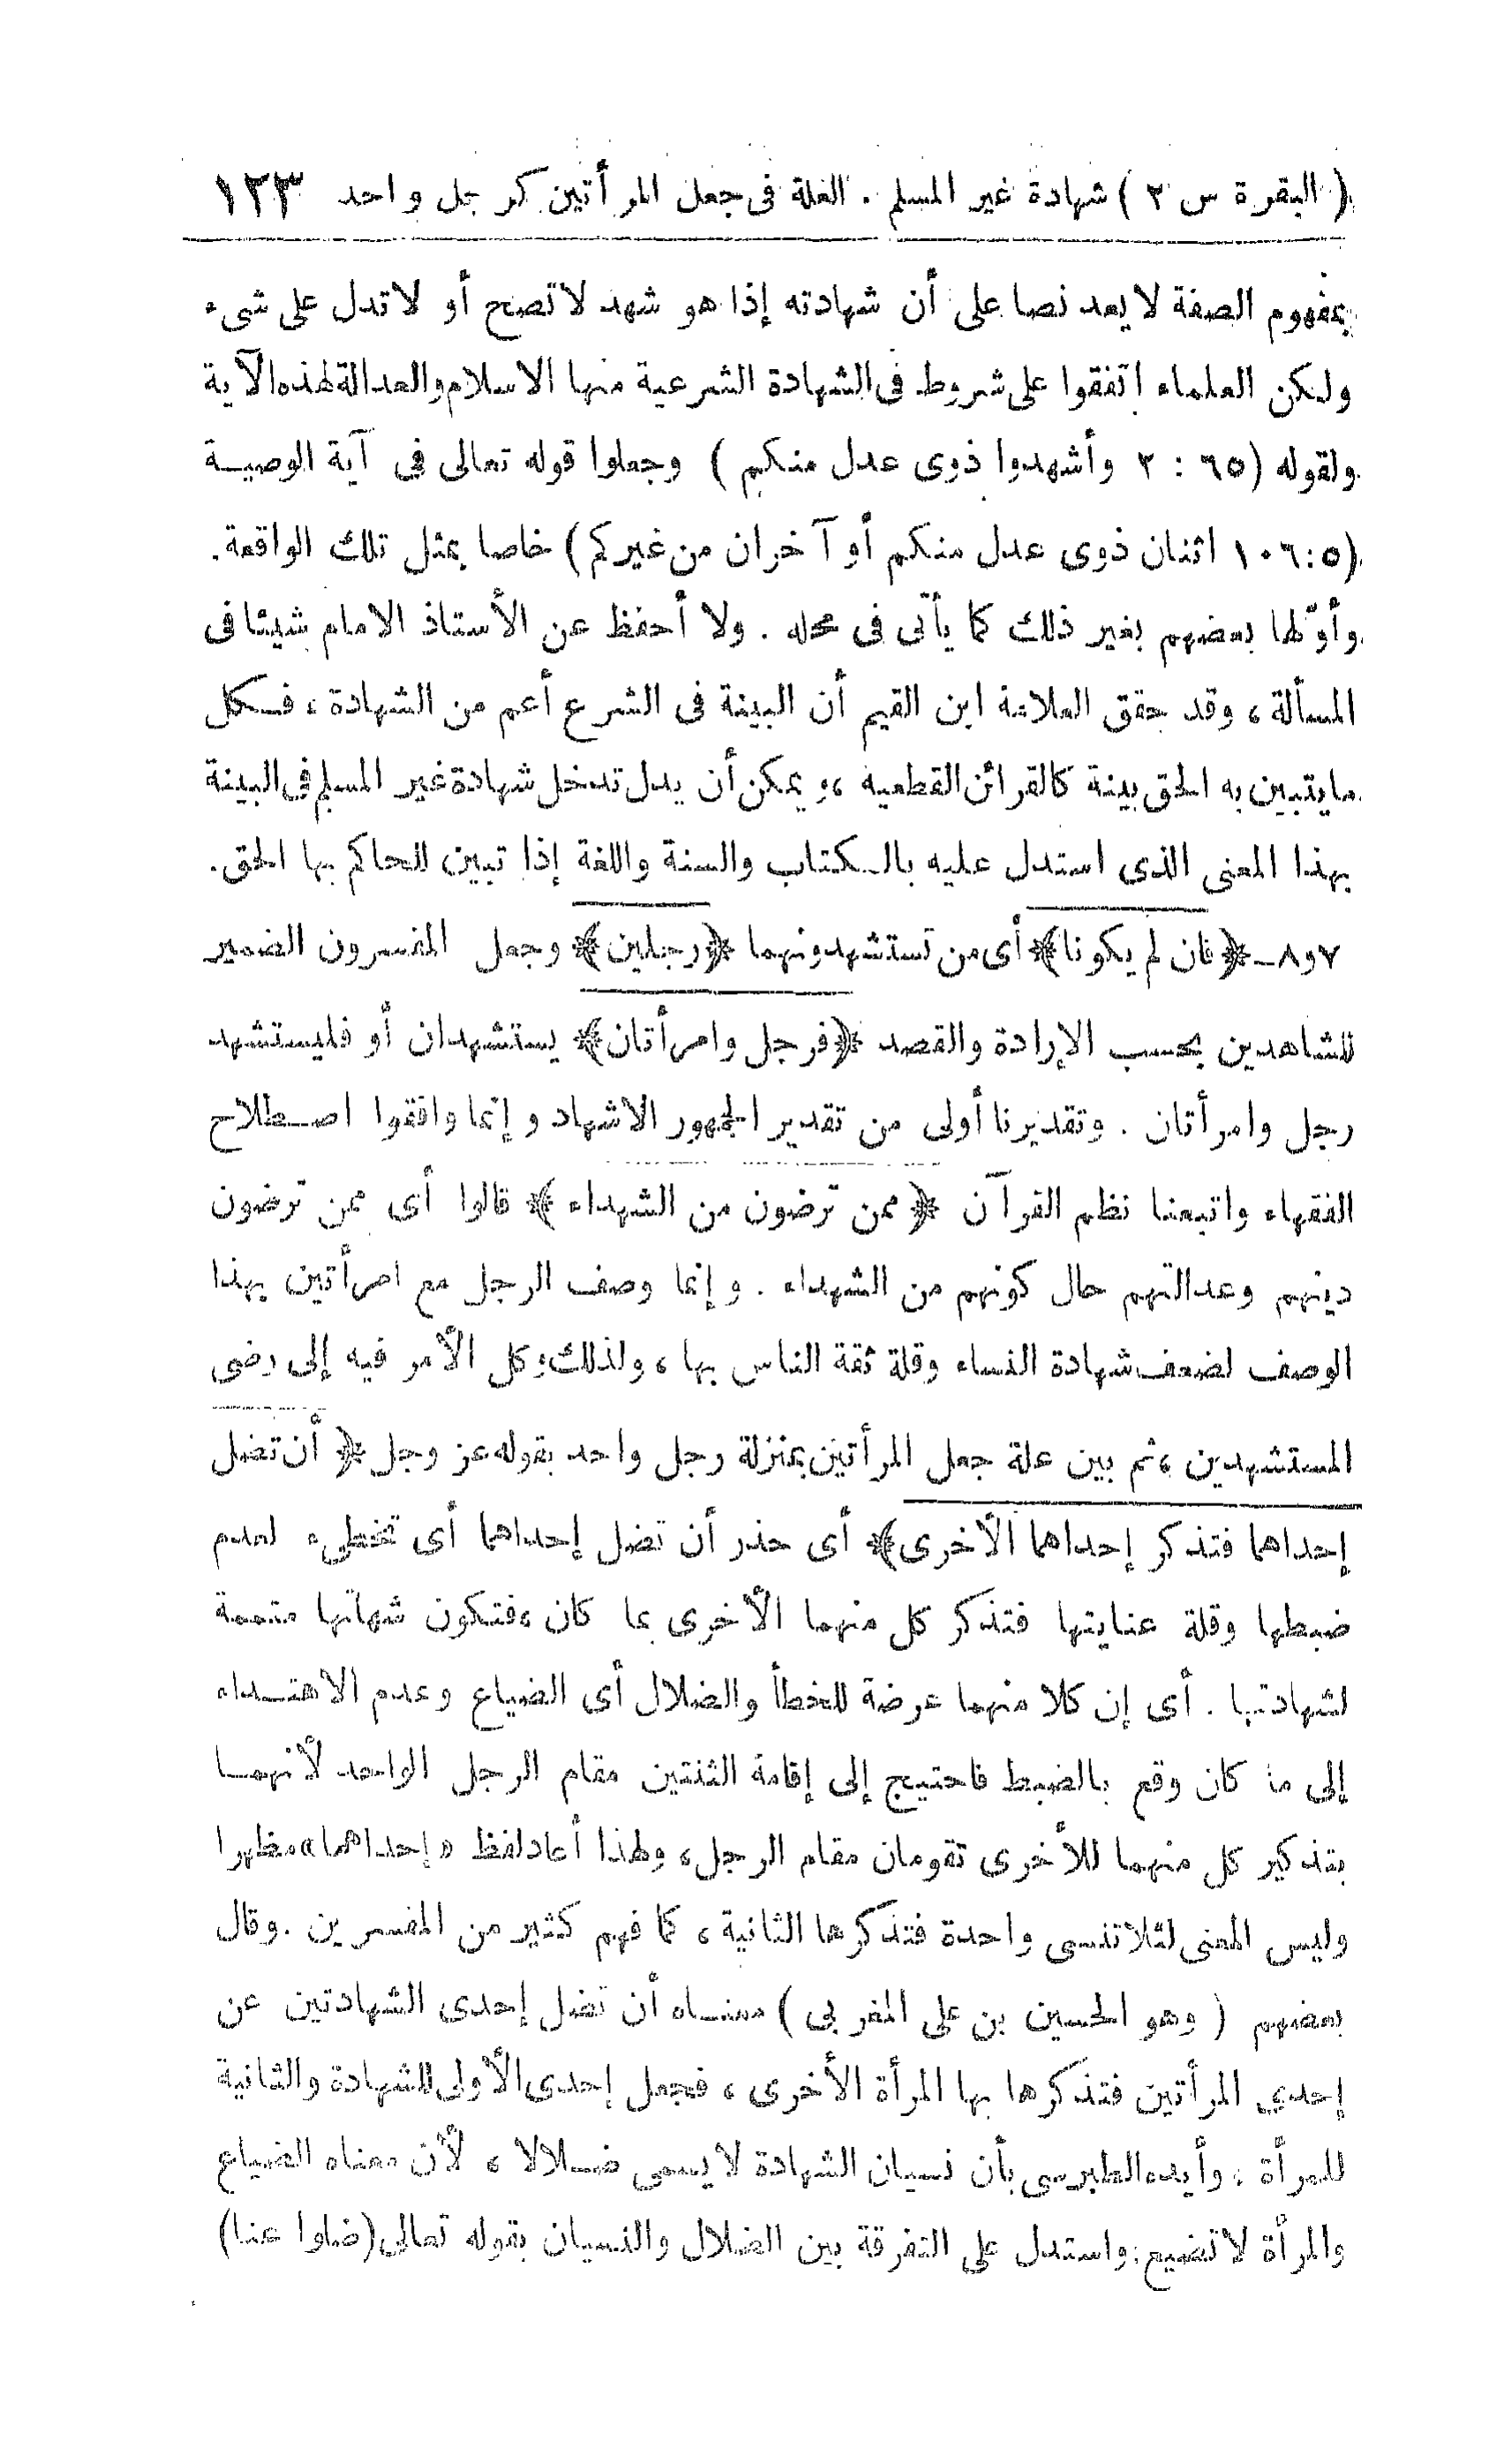 ( البقرة س ٢ ) شهادة غير المسلم . العلة فى جعل المرأتين كرجل واحد ١٢٣
بمفهوم الصفة لا يعد نصا على أن شهادته إذا هو شهد لا تصح أو لا تدل على شىء
ولكن العلماء اتفقوا على شروط فى الشهادة الشرعية منها الاسلام والعدالة لهذه الآية
ولقوله (٦٥ : ٢ وأشهدوا ذوى عدل منكم ) وجعلوا قوله تعالى فى آية الوصية
(٥:١٠٦ اثنان ذوى عدل منكم أو آخران من غيركم) خاصا بمثل تلك الواقعة.
وأوّلها بعضهم بغير ذلك كما يأتى فى محله . ولا أحفظ عن الأستاذ الامام شيئا فى
المسألة ، وقد حقق العلامة ابن القيم أن البينة فى الشرع أعم من الشهادة ، فكل
ما يتبين به الحق بينة كالقرائن القطعية ، ويمكن أن يدل تدخل شهادة غير المسلم فى البينة
بهذا المعنى الذى استدل عليه بالكتاب والسنة واللغة إذا تبين للحاكم بها الحق.
٧و٨ـ ﴿فان لم يكونا﴾ أى من تستشهدونهما ﴿رجلين﴾ وجعل المفسرون الضمير
للشاهدين بحسب الإرادة والقصد ﴿فرجل وامرأتان﴾ يستشهدان أو فليستشهد
رجل وامرأتان . وتقديرنا أولى من تقدير الجمهور الاشهاد وإنما وافقوا اصطلاح
الفقهاء واتبعنا نظم القرآن ﴿ ممن ترضون من الشهداء ﴾ قالوا أى ممن ترضون
دينهم وعدالتهم حال كونهم من الشهداء . وإنما وصف الرجل مع امرأتين بهذا
الوصف لضعف شهادة النساء وقلة ثقة الناس بها ، ولذلك وكل الأمر فيه إلى رضى
المستشهدين ، ثم بين علة جعل المرأتين بمنزلة رجل واحد بقوله عز وجل ﴿ أن تضل
إحداهما فتذكر إحداهما الأخرى﴾ أى حذر أن تضل إحداهما أى تخطىء لعدم
ضبطها وقلة عنايتها فتذكر كل منهما الأخرى بما كان ، فتكون شهاتها متممة
لشهادتها . أى إن كلا منهما عرضة للخطأ والضلال أى الضياع وعدم الاهتداء
إلى ما كان وقع بالضبط فاحتيج إلى إقامة الثنتين مقام الرجل الواحد لأنهما
بتذكير كل منهما للأخرى تقومان مقام الرجل ، ولهذا أعاد لفظ «إحداهما» مظهرا
وليس المعنى لئلا تنسى واحدة فتذكرها الثانية ، كما فهم كثير من المفسرين . وقال
بعضهم ( وهو الحسين بن على المغربى ) معناه أن تضل إحدى الشهادتين عن
إحدى المرأتين فتذكرها بها المرأة الأخرى ، فجعل إحدى الأولى للشهادة والثانية
للمرأة ، وأيده الطبرسى بأن نسيان الشهادة لا يسمى ضلالا ، لأن معناه الضياع
والمرأة لا تضيع ، واستدل على التفرقة بين الضلال والنسيان بقوله تعالى (ضلوا عنا)